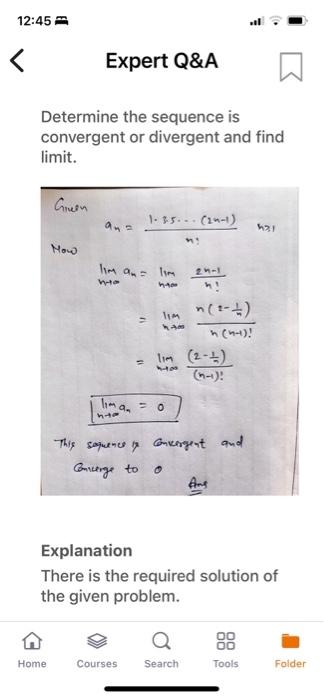 12:45
Expert Q&A
Determine the sequence is
convergent or divergent and find
limit.
Given
an = 1.3.5.... (2n-1) / n! n≥1
Now
lim n→∞ an = lim n→∞ 2n-1 / n!
= lim n→∞ n(2-1/n) / n(n-1)!
= lim n→∞ (2-1/n) / (n-1)!
lim n→∞ an = 0
This sequence is convergent and
Converge to 0
Ans
Explanation
There is the required solution of
the given problem.
Home Courses Search Tools Folder